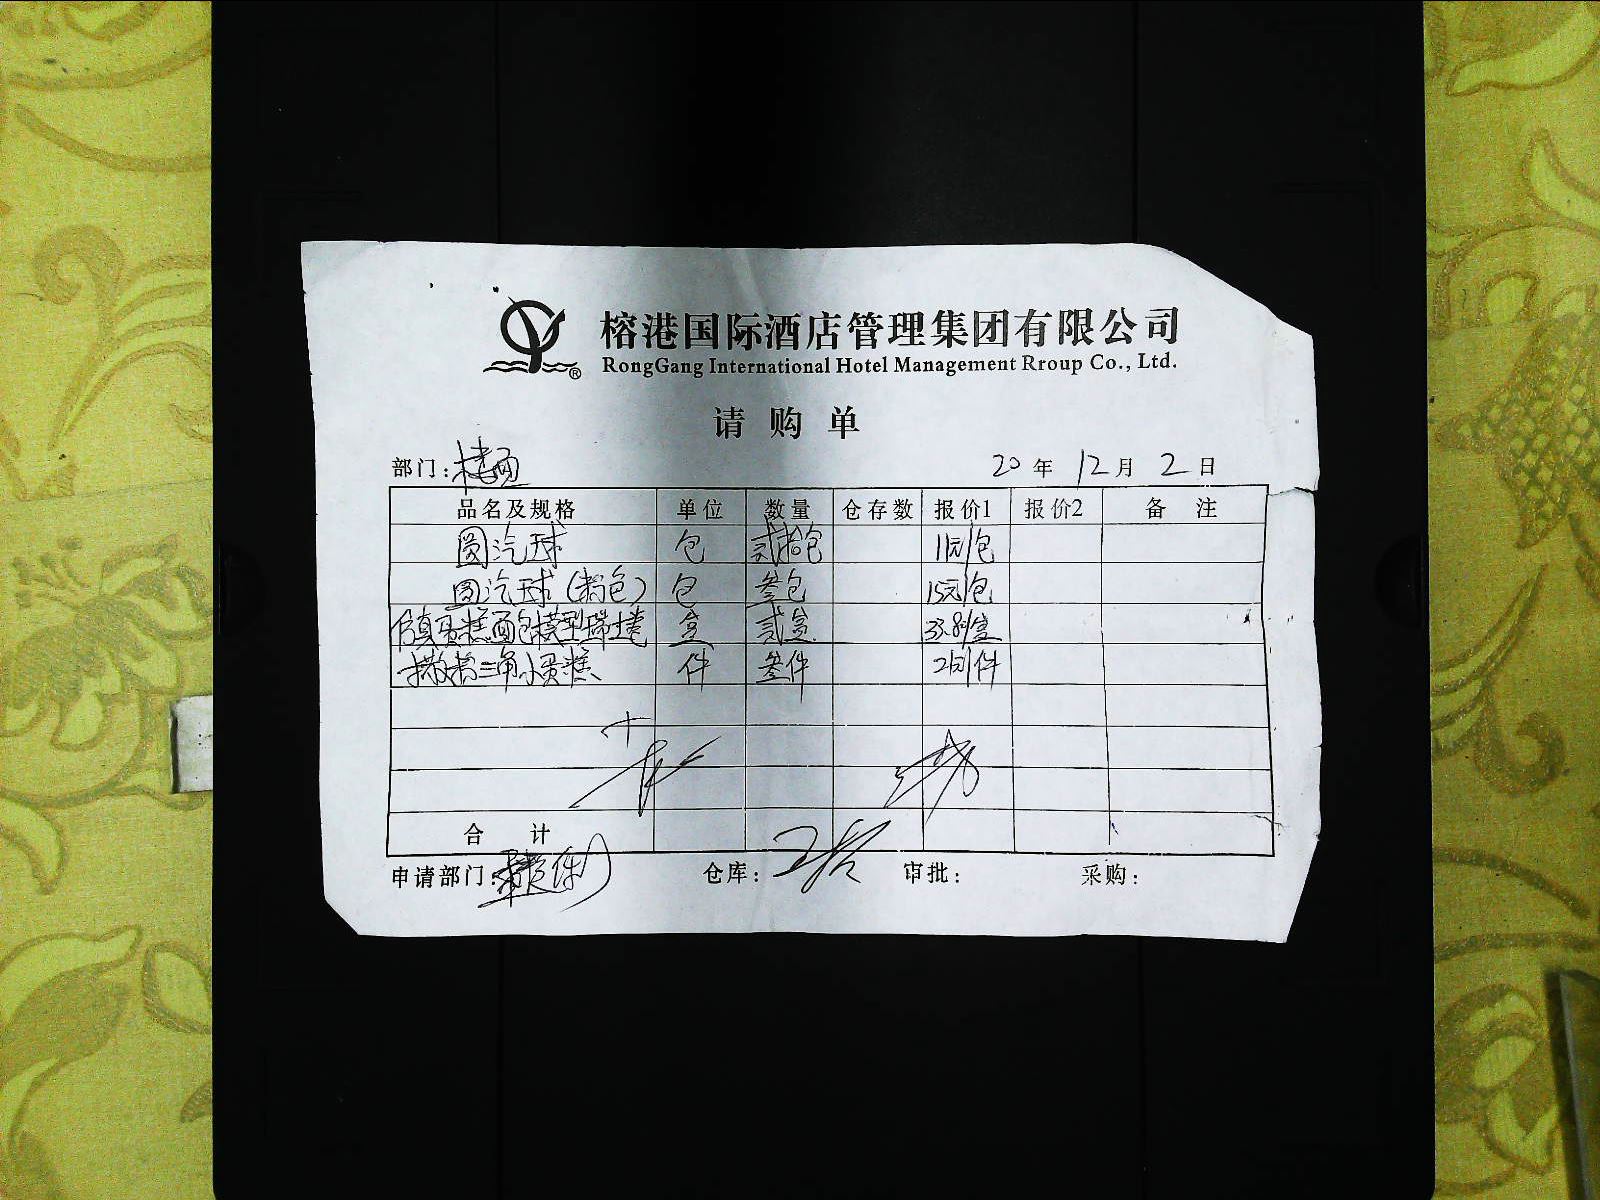 榕港国际酒店管理集团有限公司
RongGang International Hotel Management Rroup Co., Ltd.
请购单
部门：楼面 20年12月2日
品名及规格 单位 数量 仓存数 报价1 报价2 备注
圆汽球 包 贰拾包 11元/包
圆汽球（粉色） 包 叁包 15元/包
仿真蛋糕面包模型瑞士卷 盒 贰盒 35.8/盒
三角小蛋糕 件 叁件 件
合计
申请部门： 仓库： 审批： 采购：